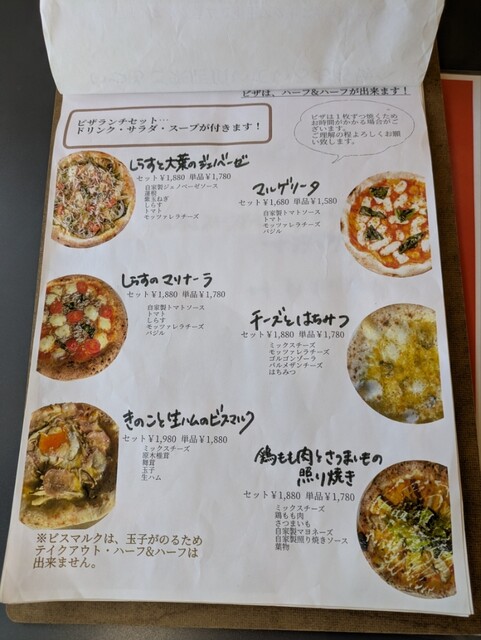 ピザは、ハーフ&ハーフが出来ます！
ピザランチセット…
ドリンク・サラダ・スープが付きます！
ピザは１枚ずつ焼くため
お時間がかかる場合がご
ざいます。
ご理解の程よろしくお願
い致します。
しらすと大葉のジェノベーゼ
セット￥1,880 単品￥1,780
自家製ジェノベーゼソース
蓮根
紫玉ねぎ
しらす
トマト
モッツァレラチーズ
マルゲリータ
セット￥1,680 単品￥1,580
自家製トマトソース
トマト
モッツァレラチーズ
バジル
しらすのマリナーラ
セット￥1,880 単品￥1,780
自家製トマトソース
トマト
しらす
モッツァレラチーズ
バジル
チーズとはちみつ
セット￥1,880 単品￥1,780
ミックスチーズ
モッツァレラチーズ
ゴルゴンゾーラ
パルメザンチーズ
はちみつ
きのこと生ハムのビスマルク
セット￥1,980 単品￥1,880
ミックスチーズ
原木椎茸
舞茸
玉子
生ハム
鶏もも肉とさつまいもの
照り焼き
セット￥1,880 単品￥1,780
ミックスチーズ
鶏もも肉
さつまいも
自家製マヨネーズ
自家製照り焼きソース
葉物
※ビスマルクは、玉子がのるため
テイクアウト・ハーフ&ハーフは
出来ません。